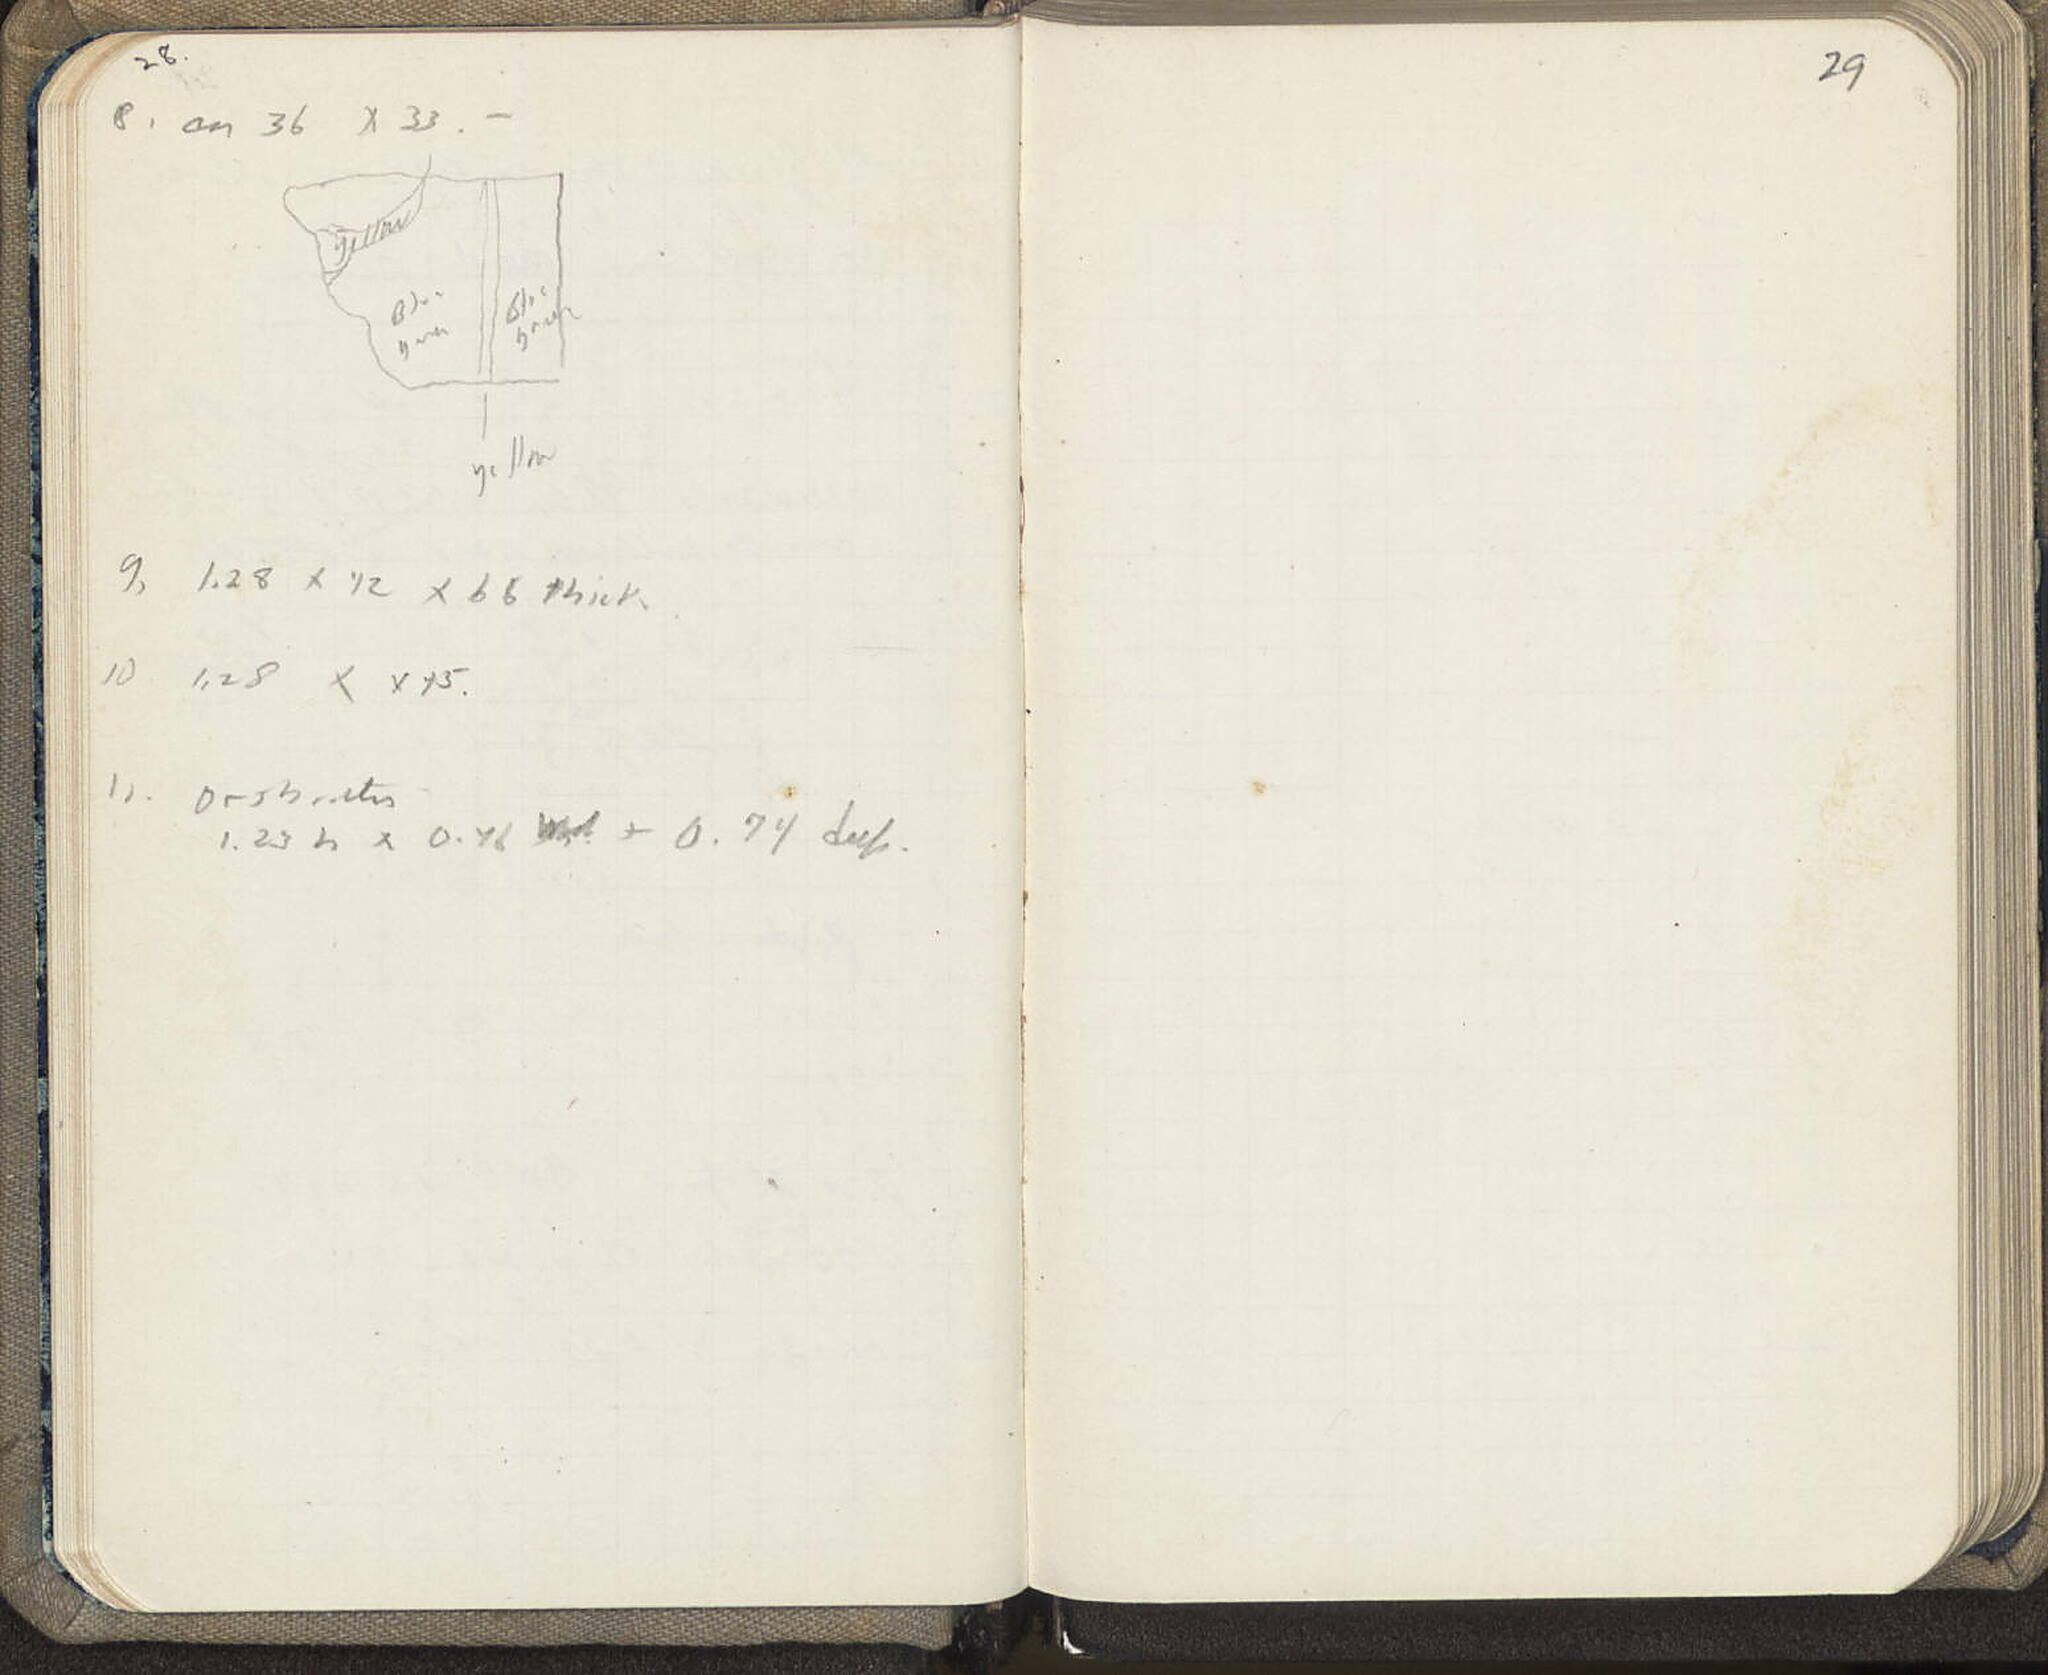 28.
29
8. cm 36 x 33. —
yellow
Blue
green
Blue
green
yellow
9. 1.28 x 42 x 66 thick
10. 1.28 x x 45.
11.
1.23 h x 0.46 x 0.74 deep.